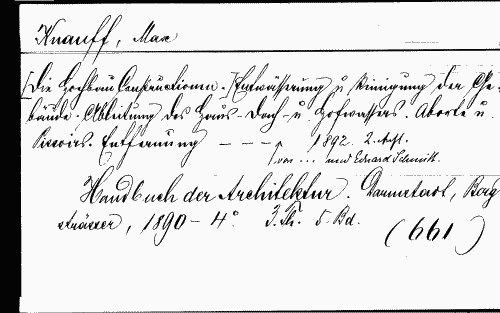 Knauff, Max
[Die Hochbau Constructionen.] Entwässerung u. Reinigung der Ge-
bäude. Ableitung des Haus- Dach- u. Hofwassers. Aborte u.
Pissoirs. Entfernung – – – 1892. 2. Aufl.
/ von ... und Eduard Schmitt.
Handbuch der Architektur. Darmstadt, Berg
strässer, 1890 – 4°. 3. Th. 5. Bd.
(661)